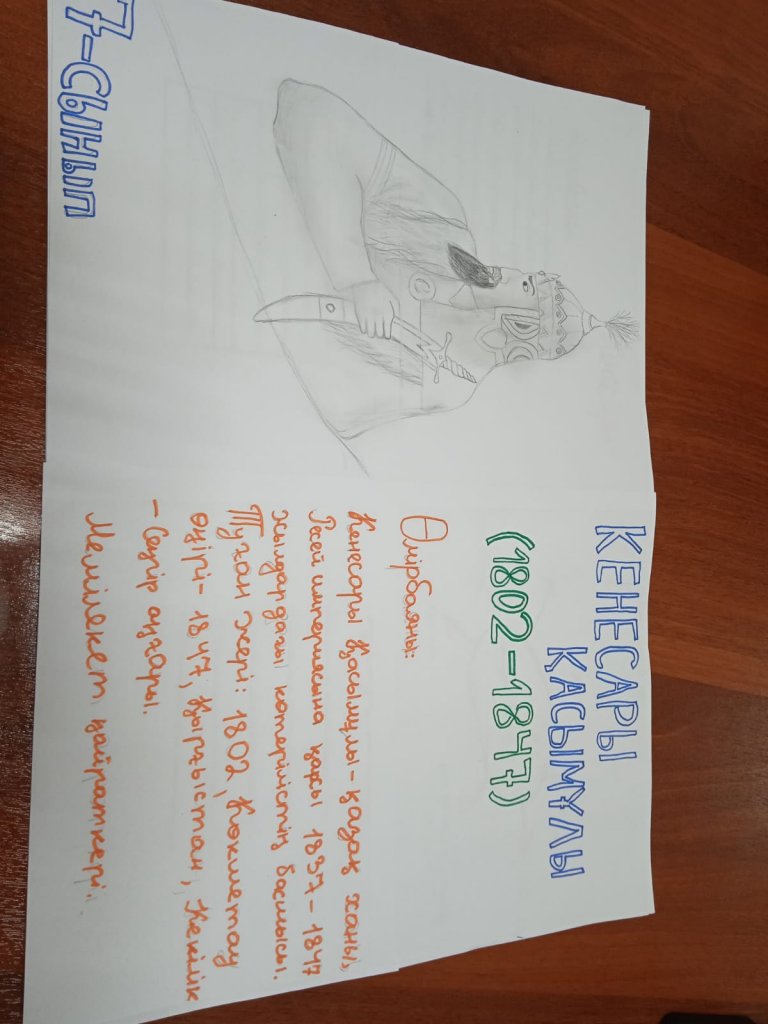 7-СЫНЫП
КЕНЕСАРЫ
ҚАСЫМҰЛЫ
(1802-1847)
Өмірбаяны:
Кенесары Қасымұлы - қазақ ханы,
Ресей империясына қарсы 1837-1847
жылдардағы көтерілістің басшысы.
Туған жері: 1802, Көкшетау
өңірі - 1847, Қырғызстан, Кекілік
- Сеңгір аңғары.
Мемлекет қайраткері.